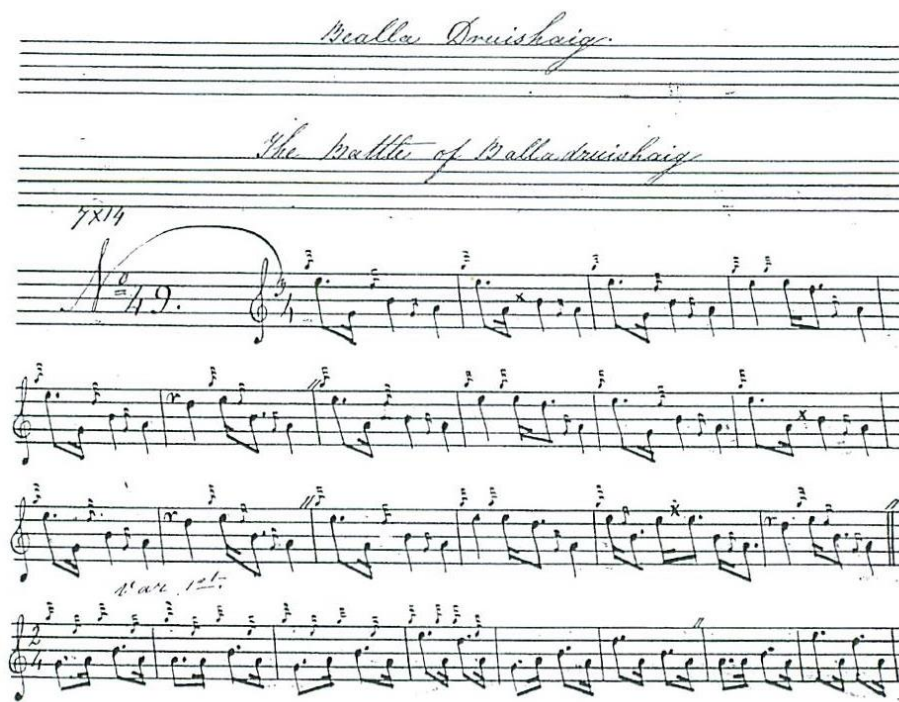 Bealla Druishaig.
The Battle of Balladruishaig
7X14
No 49. 3/4
Var. 1st.
2/4